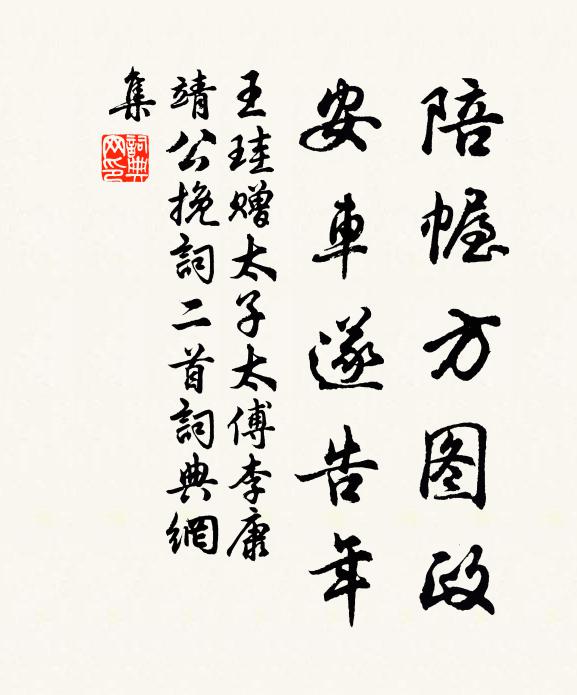 陪幄方图政
安車遂告年
王珪赠太子太傅李康
靖公挽詞二首詞典網
集
詞典
网印